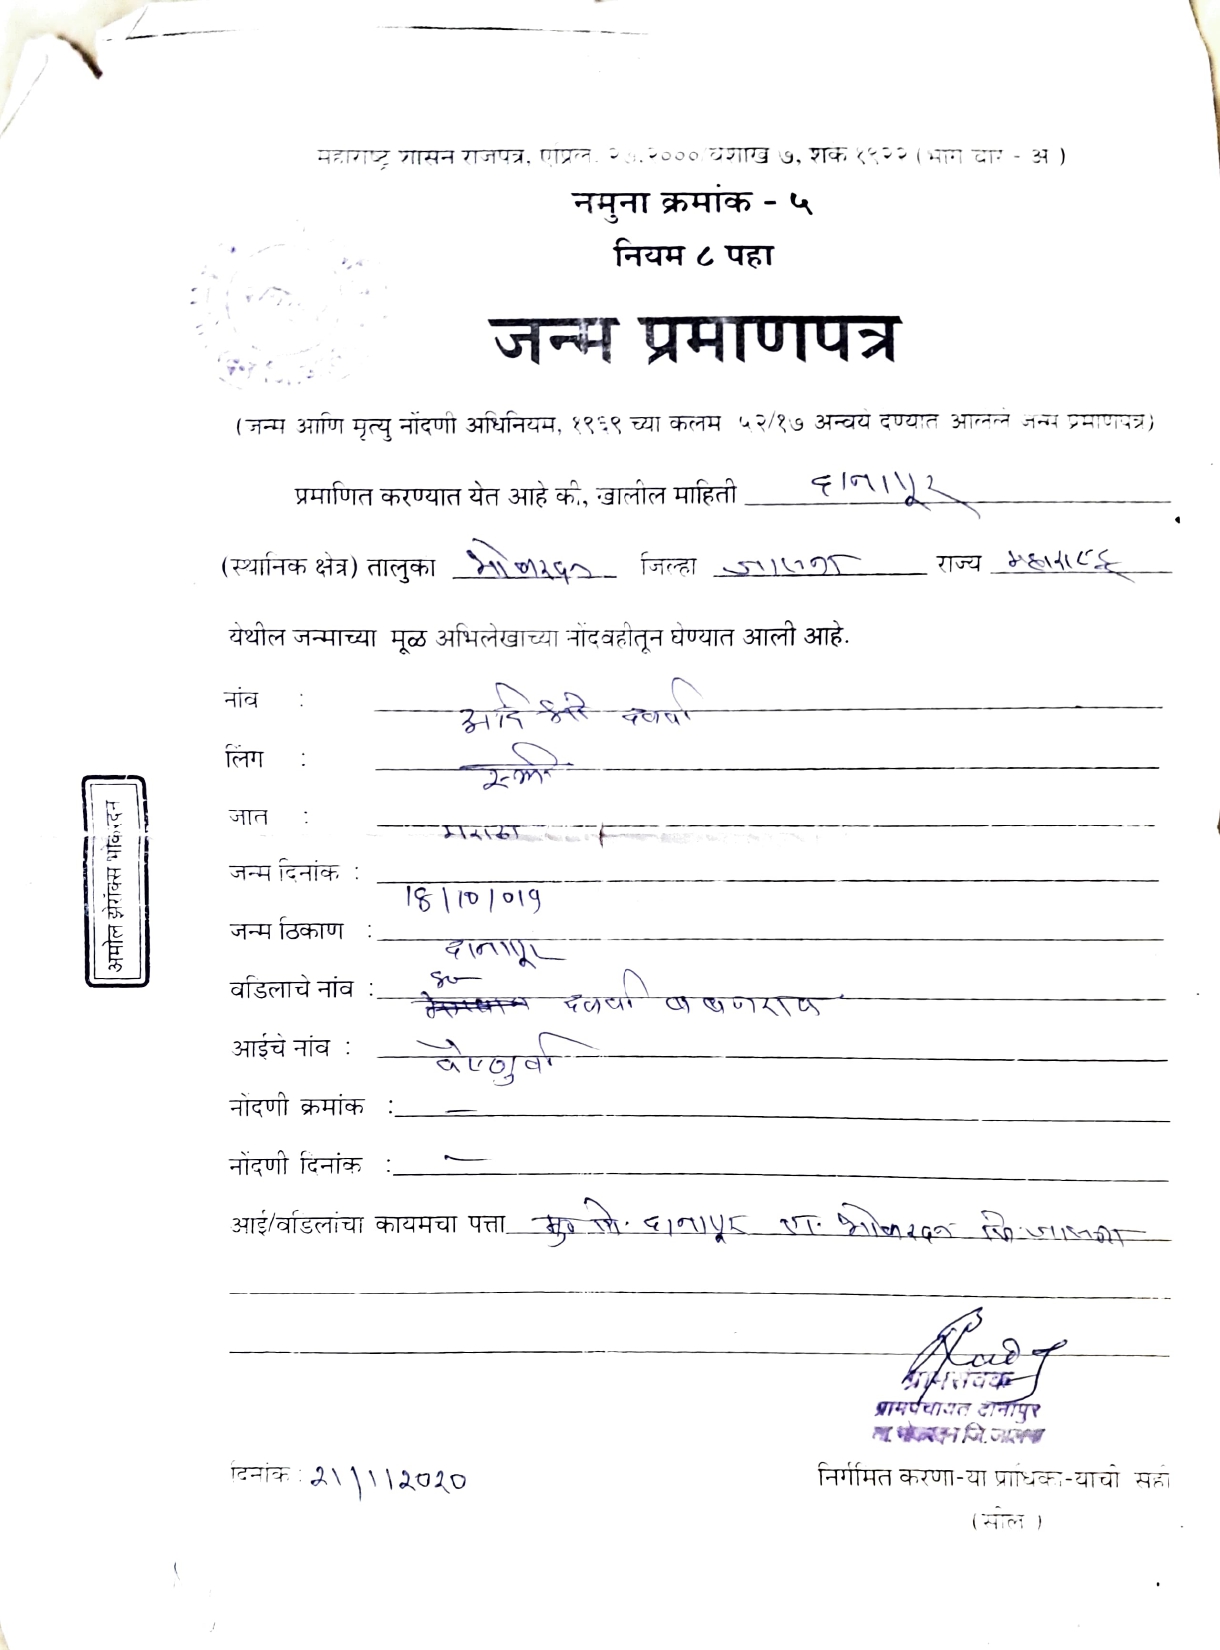 महाराष्ट्र शासन राजपत्र, एप्रिल. २७.२०००/वैशाख ७, शक १९२२ (भाग चार - अ )
नमुना क्रमांक - ५
नियम ८ पहा
जन्म प्रमाणपत्र
(जन्म आणि मृत्यु नोंदणी अधिनियम, १९६९ च्या कलम १२/१७ अन्वये देण्यात आलेले जन्म प्रमाणपत्र)
प्रमाणित करण्यात येत आहे की, खालील माहिती दानापूर
(स्थानिक क्षेत्र) तालुका भोकरदन जिल्हा जालना राज्य महाराष्ट्र
येथील जन्माच्या मूळ अभिलेखाच्या नोंदवहीतून घेण्यात आली आहे.
नांव :
लिंग : स्त्री
जात : मराठा
जन्म दिनांक : 18/10/019
जन्म ठिकाण : दानापूर
वडिलाचे नांव :
आईचे नांव :
नोंदणी क्रमांक : —
नोंदणी दिनांक : —
आई/वडिलांचा कायमचा पत्ता मु. पो. दानापूर ता. भोकरदन जि. जालना
ग्रामसेवक
ग्रामपंचायत दानापुर
ता. भोकरदन जि. जालना
दिनांक : 21/1/2020 निर्गमित करणा-या प्राधिका-याची सही
(सील )
अमोल झेरॉक्स भोकरदन